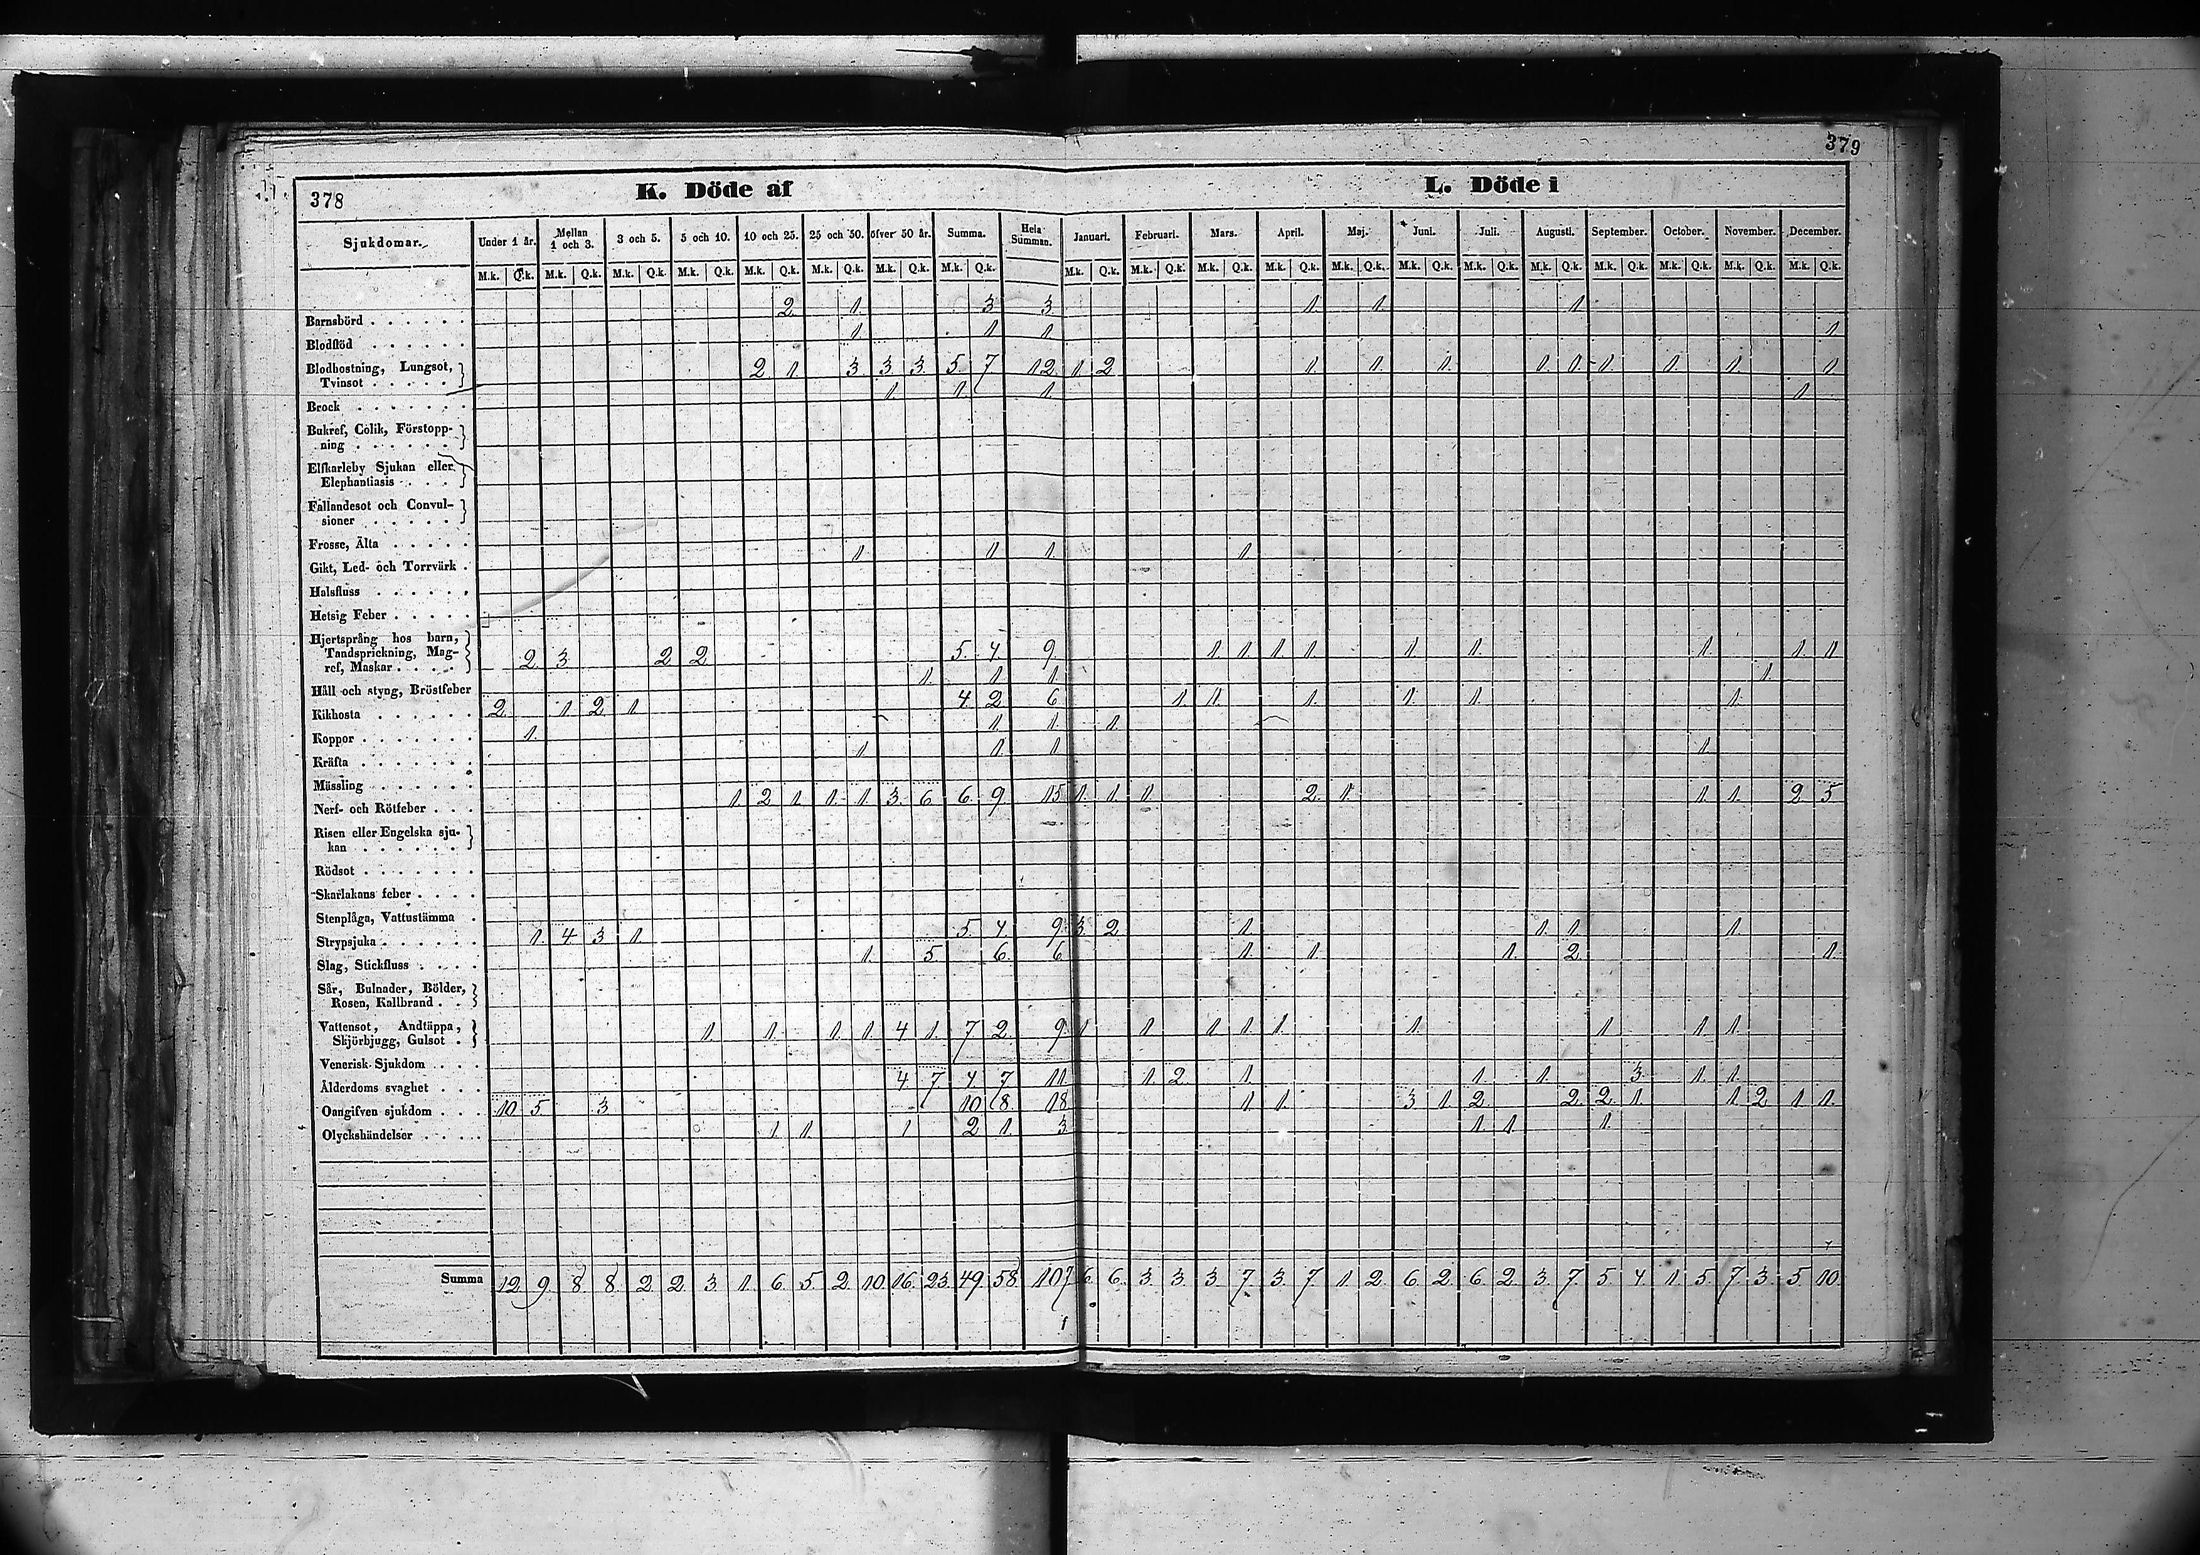 379
378 K. Döde af L. Döde i
Sjukdomar. Under 1 år. Mellan 1 och 3. 3 och 5. 5 och 10. 10 och 25. 25 och 50. öfver 50 år. Summa. Hela Summan. Januari. Februari. Mars. April. Maj. Juni. Juli. Augusti. September. October. November. December.
M.k. Q.k. M.k. Q.k. M.k. Q.k. M.k. Q.k. M.k. Q.k. M.k. Q.k. M.k. Q.k. M.k. Q.k. M.k. Q.k. M.k. Q.k. M.k. Q.k. M.k. Q.k. M.k. Q.k. M.k. Q.k. M.k. Q.k. M.k. Q.k. M.k. Q.k. M.k. Q.k. M.k. Q.k. M.k. Q.k.
Barnsbörd 2 1. 3 3 1. 1. 1
Blodflöd 1. 1 1 1
Blodhostning, Lungsot,
Tvinsot 2 1. 3. 3. 3. 5. 7 12. 1. 2 1. 1. 1. 1. 1. 1. 1. 1. 1
Brock 1 1. 1. 1
Bukref, Colik, Förstopp-
ning
Elfkarleby Sjukan eller
Elephantiasis
Fallandesot och Convul-
sioner
Frosse, Älta
Gikt, Led- och Torrvärk 1 1 1 1.
Halsfluss
Hetsig Feber
Hjertsprång hos barn,
Tandsprickning, Mag-
ref, Maskar 2. 3. 2 2 5. 4. 9 1. 1. 1. 1. 1. 1. 1. 1. 1
Håll och styng, Bröstfeber 1. 1 1 1
Kikhosta 2. 1 2. 1 4. 2 6 1. 1. 1. 1. 1. 1.
Koppor 1. 1. 1. 1.
Kräfta 1 1 1 1.
Mässling
Nerf- och Rötfeber 1. 2 1. 1. 1. 3. 6 6. 9. 15 1. 1. 1. 2. 1. 1. 1. 2 5
Risen eller Engelska sju-
kan
Rödsot
Skarlakans feber
Stenplåga, Vattustämma
Strypsjuka 1. 4 3 1. 5. 4. 9 3. 2 1. 1. 1 1.
Slag, Stickfluss 1. 5 6. 6 1. 1. 1. 2. 1.
Sår, Bulnader, Bölder,
Rosen, Kallbrand
Vattensot, Andtäppa,
Skjörbjugg, Gulsot 1. 1. 1. 1. 4 1. 7 2. 9 1 1. 1. 1. 1. 1. 1. 1. 1.
Venerisk Sjukdom
Ålderdoms svaghet 4 7. 4 7 11. 1. 2. 1. 1. 1. 3. 1. 1.
Oangifven sjukdom 10 5 3 10 8. 18 1. 1. 3. 1. 2 2. 2. 1 1. 2 1. 1.
Olyckshändelser 1. 1. 1 2 1. 3. 1. 1. 1.
Summa 12. 9. 8. 8. 2. 2. 3. 1. 6. 5 2. 10. 16. 23. 49. 58. 107 6. 6. 3. 3. 3. 7. 3. 7. 1. 2. 6. 2. 6. 2. 3. 7. 5. 4. 1. 5. 7. 3. 5. 10.